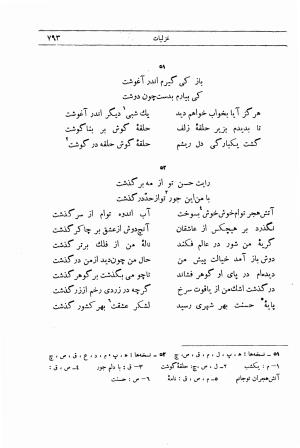 غزلیات ۷۹۳
۵۱
باز کی گیرم اندر آغوشت
کی بیارم بدست چون دوشت
هرگز آیا بخواب خواهم دید یك شبی۱ دیگر اندر آغوشت
تا بدیدم بزیر حلقهٔ زلف حلقهٔ گوش بر بناگوشت
گشت یکبارگی دل ریشم حلقهٔ گوش حلقه در گوشت۲
۵۲
رایت حسن تو از مه برگذشت
با من این جور تو از حد درگذشت
آتش هجر توام خوش خوش بسوخت آب اندوه توام از سر گذشت
نگذرد بر هیچکس از عاشقان آنچه دوش از عشق بر چاکر گذشت
گریهٔ من شور در عالم فکند نالهٔ من از فلك برتر گذشت
دوش باز آمد خیالت پیش من حال من چون دید از من درگذشت
دیده‌ام در پای او گوهر فشاند تا چو می بگذشت بر گوهر گذشت
درگذشت اشك من از یاقوت سرخ گرچه در زردی رخم از زر گذشت
پایهٔ۵ حسنت بهر شهری رسید لشکر عشقت۶ بهر کشور گذشت
۵۱ – نسخه‌ها : ه ، پ ، ل ، م ، ق ، ص ، چ
۱– م : یکشب ۲– ل ، ص ، چ: حلقهٔ گوشت
۵– م ، ق : نامهٔ ۶– ص ، ق : حسنت